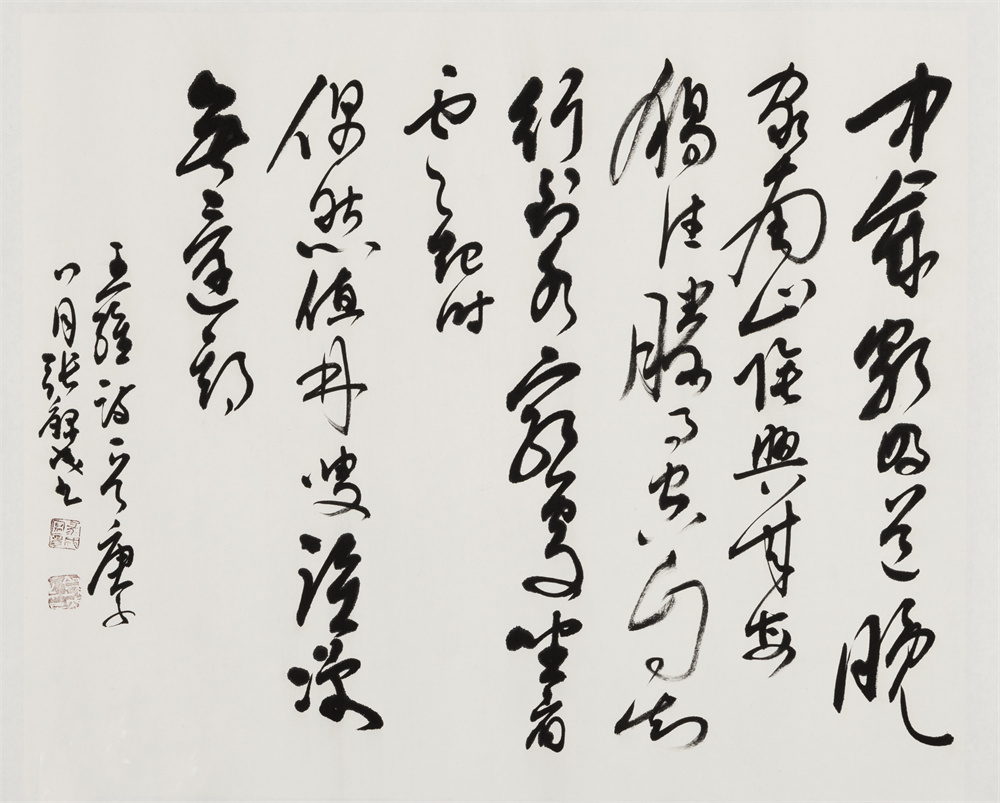 中歲頗好道晚
家南山陲興來每
獨往勝事空自知
行到水窮處坐看
雲起时
偶然值林叟談咲
無還期
王維詩一首庚子
八月張書